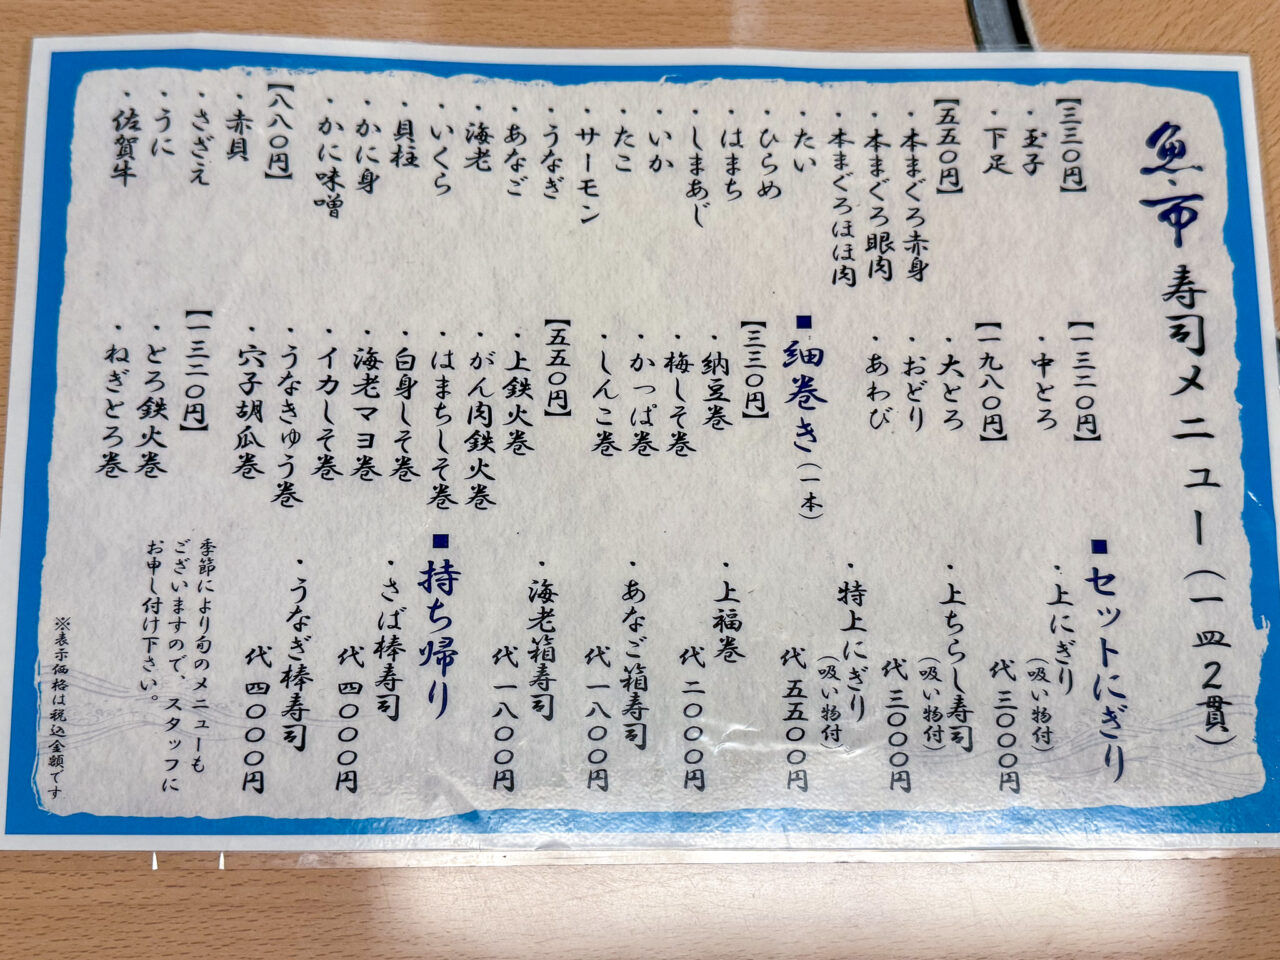 魚市 寿司メニュー(一皿2貫)
【三三〇円】
・玉子
・下足
【五五〇円】
・本まぐろ赤身
・本まぐろ眼肉
・本まぐろほほ肉
・たい
・ひらめ
・はまち
・しまあじ
・いか
・たこ
・サーモン
・うなぎ
・あなご
・海老
・いくら
・貝柱
・かに身
・かに味噌
【八八〇円】
・赤貝
・さざえ
・うに
・佐賀牛
【一三二〇円】
・中とろ
【一九八〇円】
・大とろ
・おどり
・あわび
■細巻き(一本)
【三三〇円】
・納豆巻
・梅しそ巻
・かっぱ巻
・しんこ巻
【五五〇円】
・上鉄火巻
・がん肉鉄火巻
・はまちしそ巻
・白身しそ巻
・海老マヨ巻
・イカしそ巻
・うなきゅう巻
・穴子胡瓜巻
【一三二〇円】
・とろ鉄火巻
・ねぎとろ巻
■セットにぎり
・上にぎり
(吸い物付)
代 三〇〇〇円
・上ちらし寿司
(吸い物付)
代 三〇〇〇円
・特上にぎり
(吸い物付)
代 五五〇〇円
・上福巻
代 二〇〇〇円
・あなご箱寿司
代 一八〇〇円
・海老箱寿司
代 一八〇〇円
■持ち帰り
・さば棒寿司
代 四〇〇〇円
・うなぎ棒寿司
代 四〇〇〇円
季節により旬のメニューも
ございますので、スタッフに
お申し付け下さい。
※表示価格は税込金額です